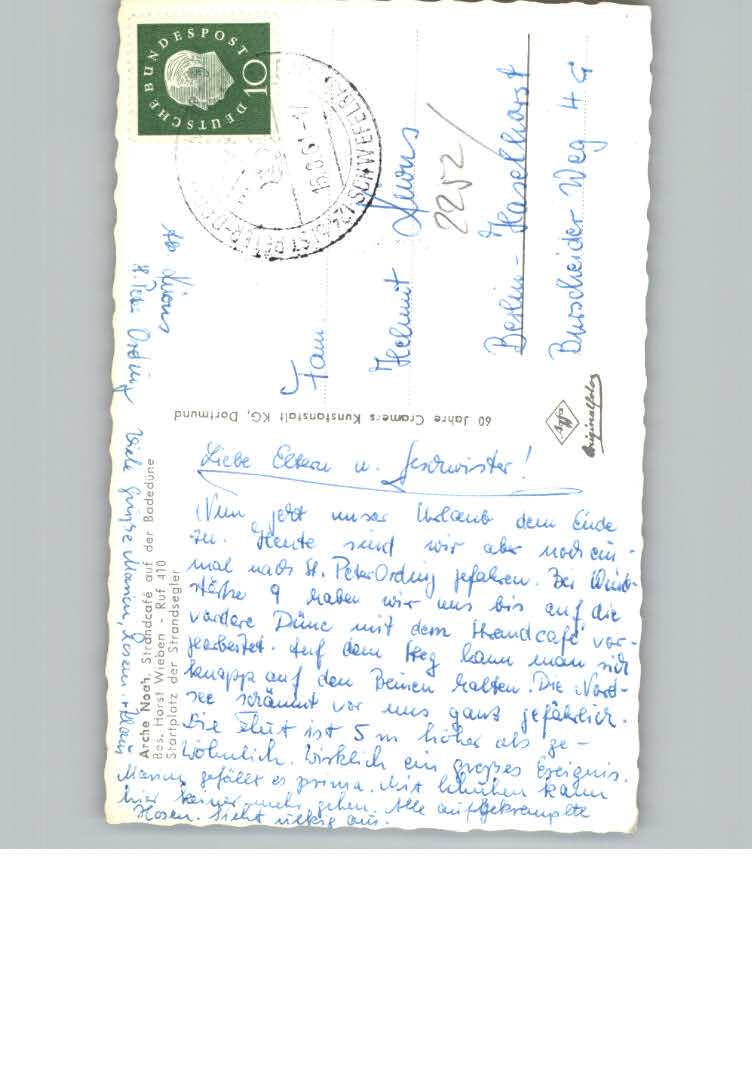 DEUTSCHE BUNDESPOST
10
(24) ST. PETER-
SCHWEFELB
15.8.61-17
Abs.
St. Peter Ording
Fam.
Helmut
2252/
Berlin-Haselhorst
Burscheider Weg 4 G
60 Jahre Cramers Kunstanstalt KG, Dortmund
Agfa
Originalfoto
Liebe Eltern u. Geschwister!
Nun geht unser Urlaub dem Ende
zu. Heute sind wir aber noch ein-
mal nach St. Peter Ording gefahren. Bei Wind-
stärke 9 haben wir uns bis auf die
vordere Düne mit dem Strandcafé vor-
gearbeitet. Auf dem Steg kann man sich
knapp auf den Beinen halten. Die Nord-
see schäumt vor uns ganz gefährlich.
Die Flut ist 5 m höher als ge-
wöhnlich. Wirklich ein großes Ereignis.
gefällt es prima. Mit Schuhen kann
hier keiner mehr gehen. Alle aufgekrempelte
Hosen. Sieht ulkig aus.
Viele Grüße
Arche Noah, Strandcafé auf der Badedüne
Bes. Horst Wieben - Ruf 410
Startplatz der Strandsegler